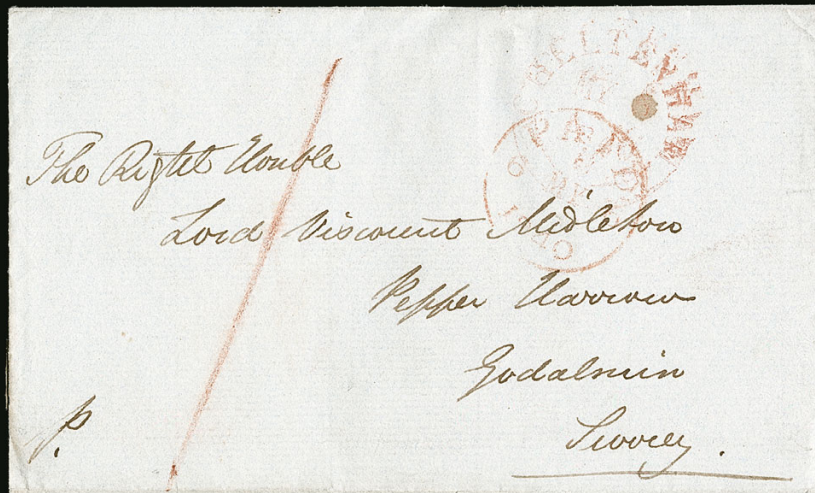 CHELTENHAM
PAID
The Right Honble
Lord Viscount Midleton
Pepper Harrow
Godalmin
Surrey.
P.